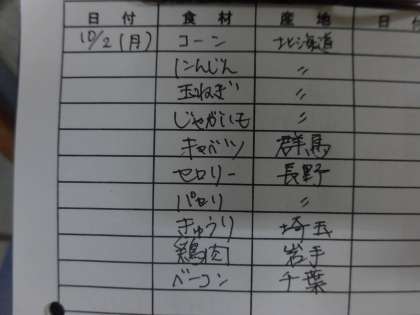 日付 食材 産地 日付
10/2(月) コーン 北海道
にんじん 〃
玉ねぎ 〃
じゃがいも 〃
キャベツ 群馬
セロリー 長野
パセリ 〃
きゅうり 埼玉
鶏肉 岩手
ベーコン 千葉